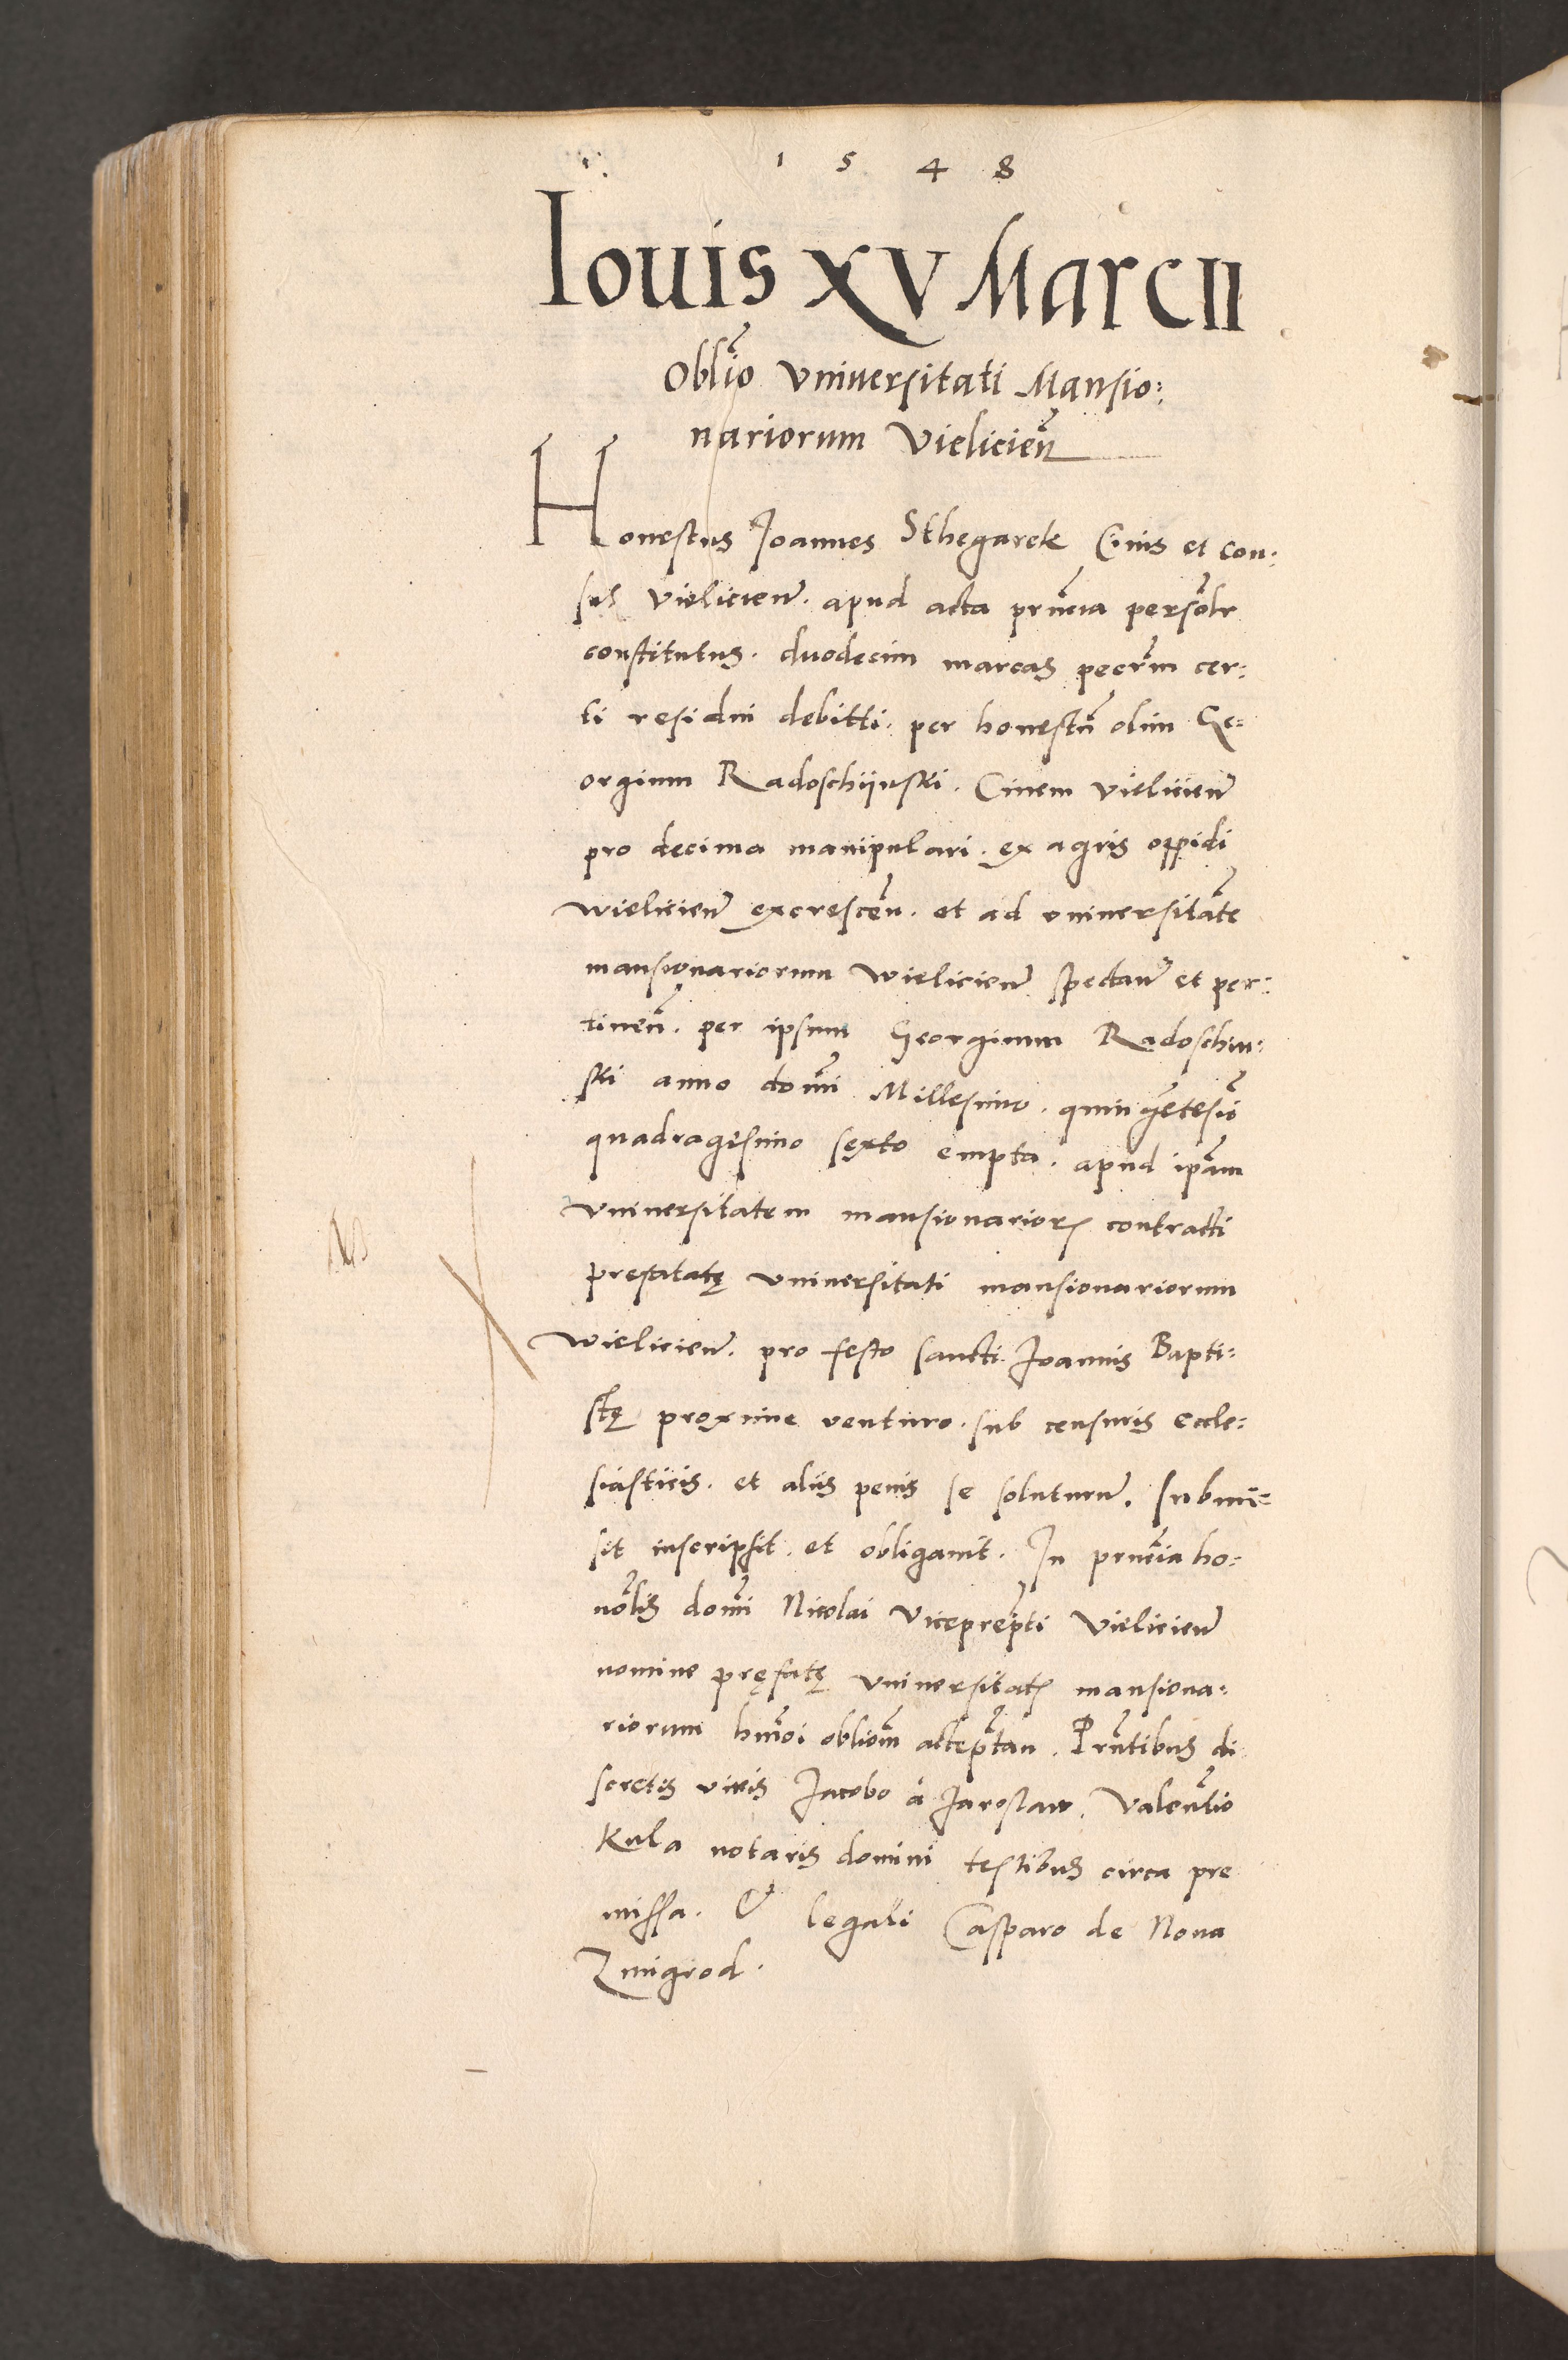 1 5 4 8
Iouis XV MarcII
Obli͞o Vniuersitati Mansio:
nariorum Vielicień
Honestus Joannes Sthegarek Ciuis et con:
sul Vielicień. apud acta prn͞cia persol͞r
constitutus. duodecim marcas pecn͞m cer:
ti residui debitti. per honestū olim Ge:
orgium Radoschijnski. Ciuem Vielicień
pro decima manipulari. ex agris oppidi
Wielicień excrescēn. et ad vniuersitāte
mansionariorum Wielicień spectań et per:
tineń. per ipsum Georgium Radoschin:
ski anno domi͞ Millesimo. quingētesiō
quadragesimo sexto empta. apud ipa͞m
Vniuersitatem mansionarior͞ contracti
prefatatę Vniuersitati mansionariorum
Wielicień. pro festo sancti Joannis Bapti:
stę proxime venturo. sub censuris eccle:
siasticis. et aliis penis se soluturum. submi:
sit inscripsit. et obligauit. In prn͞cia ho:
no͞lis domi͞ Nicolai Vicepre͞pti Vielicień
nomine pręfatę Vniuersitat͞ mansiona:
riorum hm͞oi oblio͞m accepta͞n. Prn͞tibus di
scretis viris Jacobo à Jaroslaw. Valen͞tio
Kula notariis domini testibus circa pre
missa. Et legali Casparo de Noua
Zmigrod.